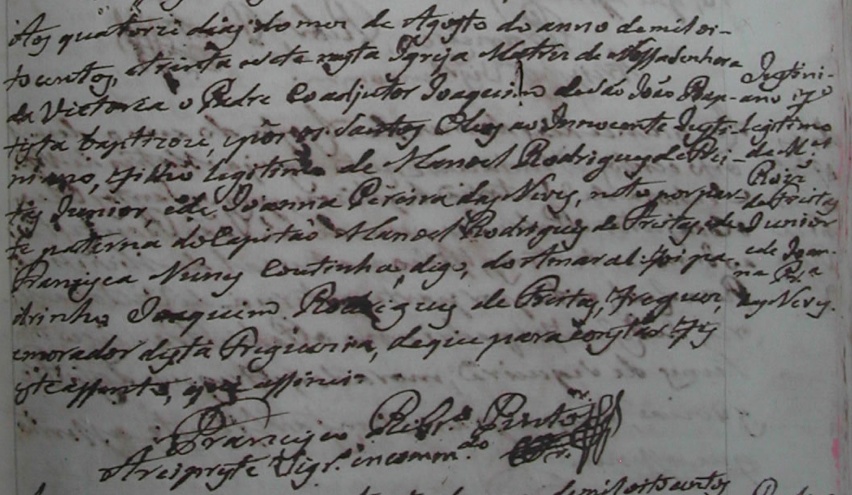 Aos quatorze dias do mes de Agosto do anno de mil oi-
tocentos, e trinta e sete nesta Igreja Matriz de Nossa Senhora
da Victoria o Padre Coadjutor Joaquim de São João Bap-
tysta baptizou, e pôs os Santos Oleos ao Innocente Justi-
niano, filho legitimo de Manoel Rodrigues de Frei-
tas Junior, e de Joanna Pereira das Neves, neto por par-
te paterna do Capitão Manoel Rodrigues de Freitas, e de
Francisca Nunes Coutinha, digo, do Amaral: foi pa-
drinho Joaquim Rodrigues de Freitas, freguez,
e morador desta Freguezia, de que para constar fiz
este assento, que assinei.
Francisco Ribro Pinto
Arcipryste Vigro incommdo
Justini-
ano fo
legitimo
de Mel
Roiz
de Freitas
Junior
e de Joan-
na Pra
das Neves.
de mil oitocentos